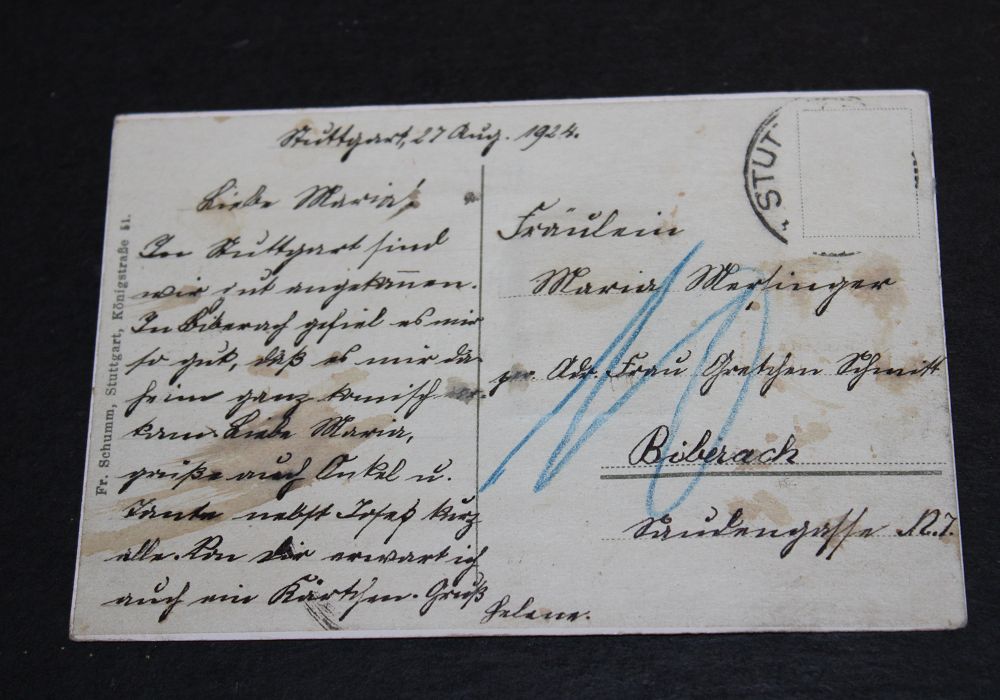 Stuttgart, 27 Aug. 1924.
Liebe Maria!
In Stuttgart sind
wir gut angekom̄en.
In Biberach gefiel es mir
so gut, daß es mir da-
heim ganz komisch vor-
kam. Liebe Maria,
grüße auch Onkel u.
Tante nebst Josef kurz
alle. Von Dir erwart ich
auch ein Kärtchen. Gruß
Helene.
Fräulein
Maria Mersinger
Adr. Frau Gretchen Schmitt
Biberach
N. 7.
STUT
10
Fr. Schumm, Stuttgart, Königstraße 51.